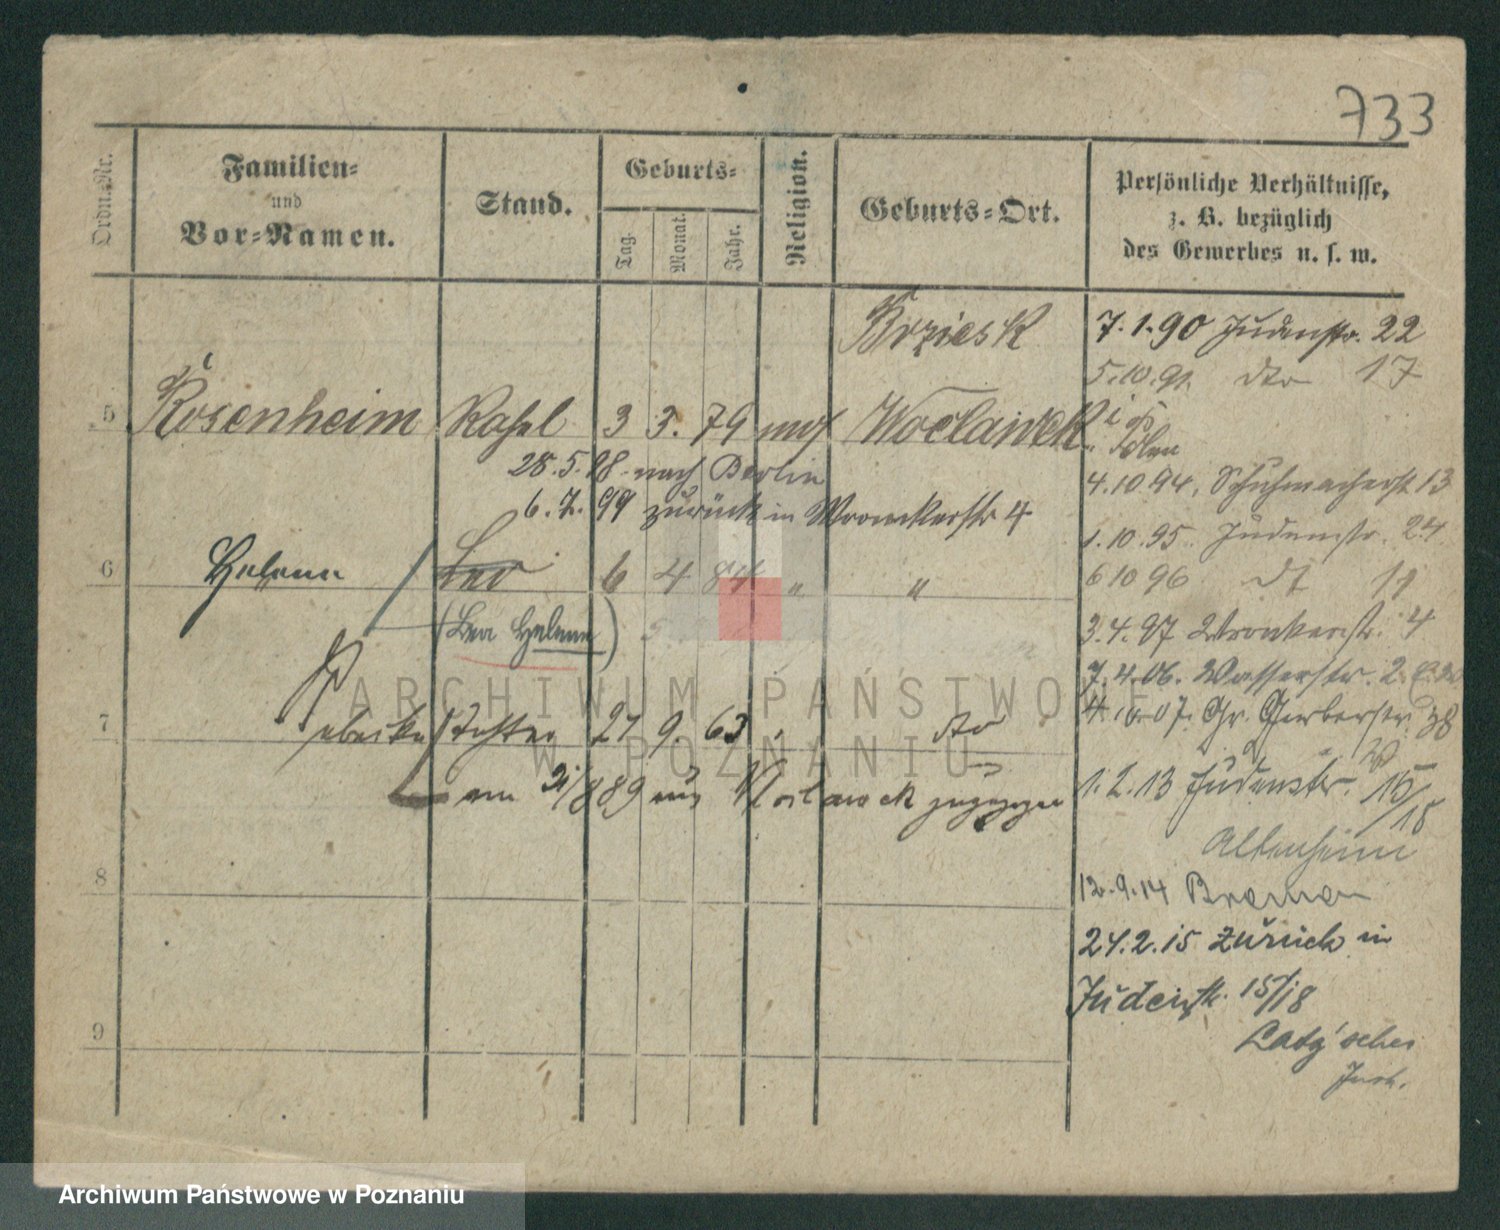 733
Ordn.Nr.
Familien-
und
Vor-Namen.
Stand.
Geburts-
Tag.
Monat.
Jahr.
Religion.
Geburts-Ort.
Persönliche Verhältnisse,
z. B. bezüglich
des Gewerbes u. s. w.
7.1.90 Judenstr. 22
5.10.91 dto 17
5 Rosenheim 3 3. 79 mos Woclawek i
Polen
28.5.98 nach Berlin
4.10.94. Schuhmacherst 13
6.7.99 zurück in Wronkerstr 4
1.10.95. Judenstr. 24
6 Helene Leo 6 4 84 " "
6 10 96 dt 19
(Lea Helene)
3.4.97 Wronkerstr. 4
7.4.06. Wasserstr. 2
07. Gr. Gerberstr. 38
7 Tochter 27 9. 63 dto
1.2.13 Judenstr. 15/18
am 89 aus Woclawek zugezogen
Altenheim
12.9.14 Bremen
8
24.2.15 zurück in
Judenstr. 15/18
9
Latz'sches
ARCHIWUM PAŃSTWOWE
W POZNANIU
Archiwum Państwowe w Poznaniu